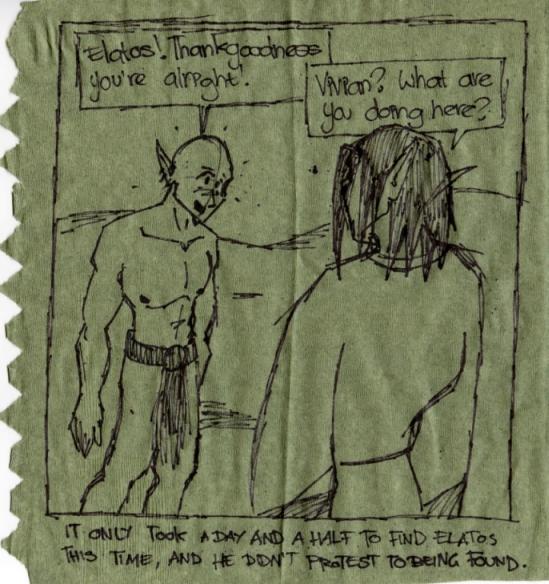 Elatos! Thankgoodness
you're alright!
Vivian? What are
you doing here?
IT ONLY TOOK A DAY AND A HALF TO FIND ELATOS
THIS TIME, AND HE DIDN'T PROTEST TO BEING FOUND.